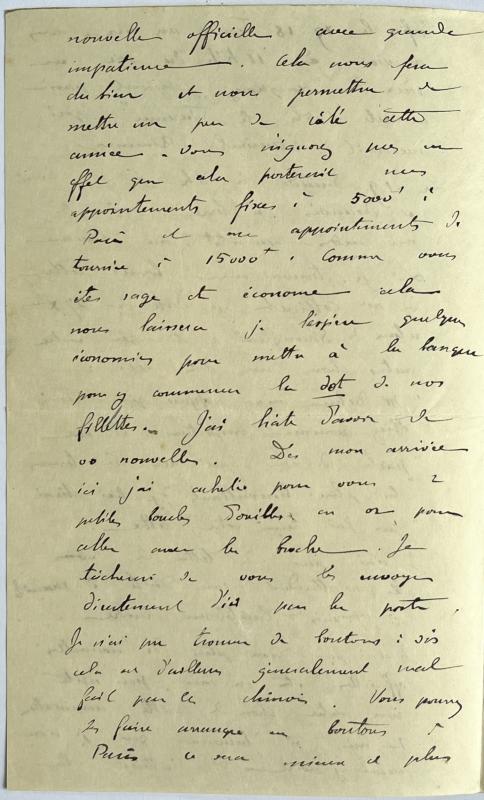 nouvelle officielle avec grande
impatience. Cela nous fera
du bien et nous permettra de
mettre un peu de côté cette
année. Vous n'ignorez pas en
effet que cela porterait mes
appointements fixes à 5000f à
Paris et mes appointements de
tournée à 15000f. Comme vous
êtes sage et économe cela
nous laissera je l'espère quelques
économies pour mettre à la banque
pour y commencer la dot de nos
fillettes. J'ai hâte d'avoir de
vos nouvelles. Dès mon arrivée
ici j'ai acheté pour vous 2
petites boucles d'oreilles en or pour
aller avec la broche. Je
tâcherai de vous les envoyer
directement d'ici par la poste.
Je n'ai pu trouver de boutons :
cela est d'ailleurs généralement mal
fait par les chinois. Vous pourrez
les faire arranger en boutons à
Paris ce sera mieux et plus